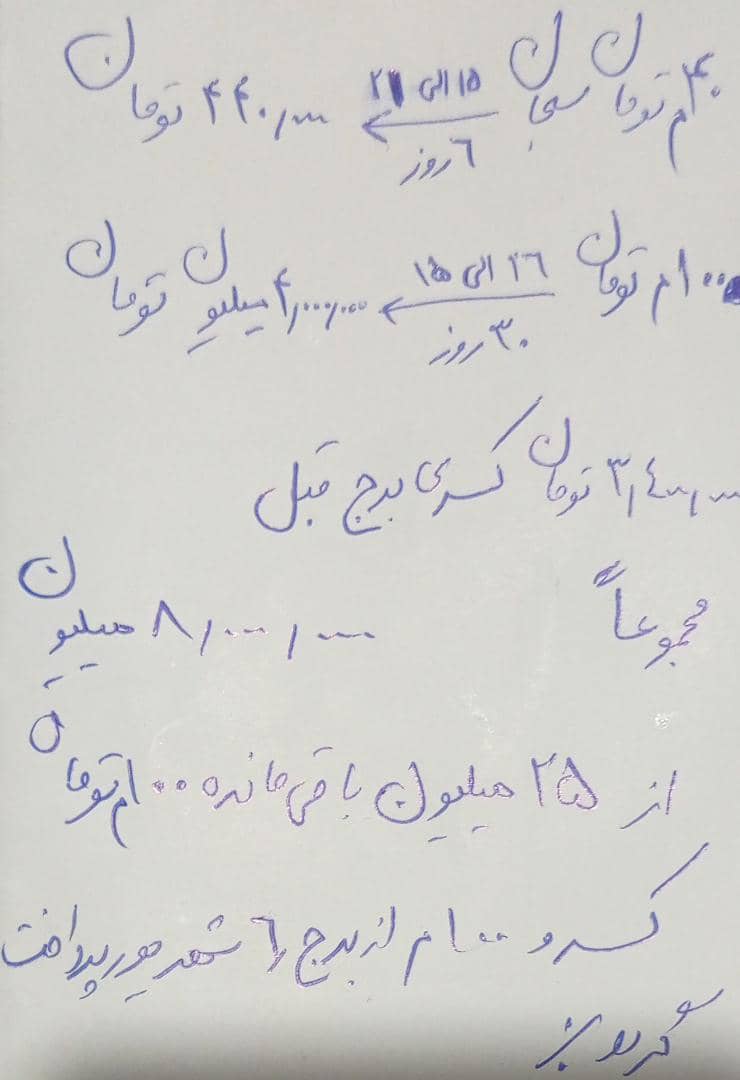 ۴۰م تومان سبحان ۱۵ الی ۲۱ ۶ روز ۴۴۰,۰۰۰ تومان
۱۰۰م تومان ۱۶ الی ۱۵ ۳۰ روز ۴,۰۰۰,۰۰۰ میلیون تومان
۳,۴۰۰,۰۰۰ تومان کسری برج قبل
مجموعاً ۸,۰۰۰,۰۰۰ میلیون
از ۲۵ میلیون باقی مانده ۱۰۰م تومان
کسر و ۱۰۰م از برج ۶ شهریور پرداخت